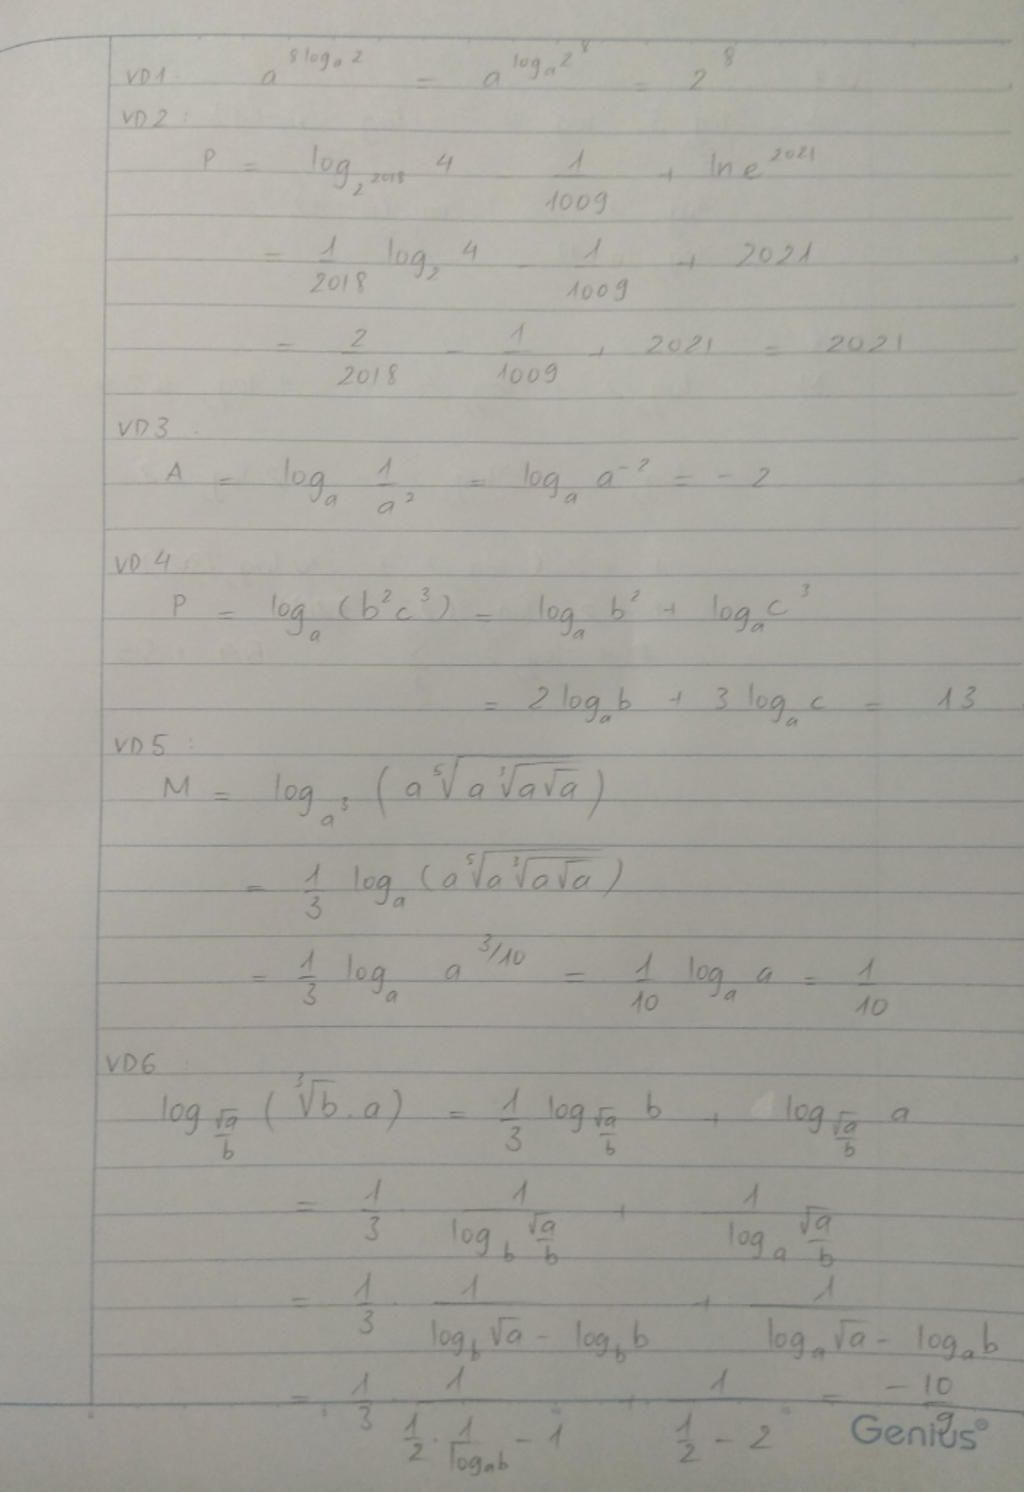 VD1 a^{8 log_a 2} = a^{log_a 2^8} = 2^8
VD2 :
P = log_{2^{2018}} 4 - 1/1009 + ln e^{2021}
= 1/2018 log_2 4 - 1/1009 + 2021
= 2/2018 - 1/1009 + 2021 = 2021
VD3 .
A = log_a 1/a^2 = log_a a^{-2} = -2
VD4
P = log_a (b^2c^3) = log_a b^2 + log_a c^3
= 2 log_a b + 3 log_a c = 13
VD5 :
M = log_{a^3} (a ⁵√(a ³√(a√a)))
= 1/3 log_a (a ⁵√(a ³√(a√a)))
= 1/3 log_a a^{3/10} = 1/10 log_a a = 1/10
VD6 :
log_{√a/b} (³√b . a) = 1/3 log_{√a/b} b + log_{√a/b} a
= 1/3 . 1/(log_b √a/b) + 1/(log_a √a/b)
= 1/3 . 1/(log_b √a - log_b b) + 1/(log_a √a - log_a b)
= 1/3 . 1/(1/2 . 1/(log_a b) - 1) + 1/(1/2 - 2) = -10/9
Genius